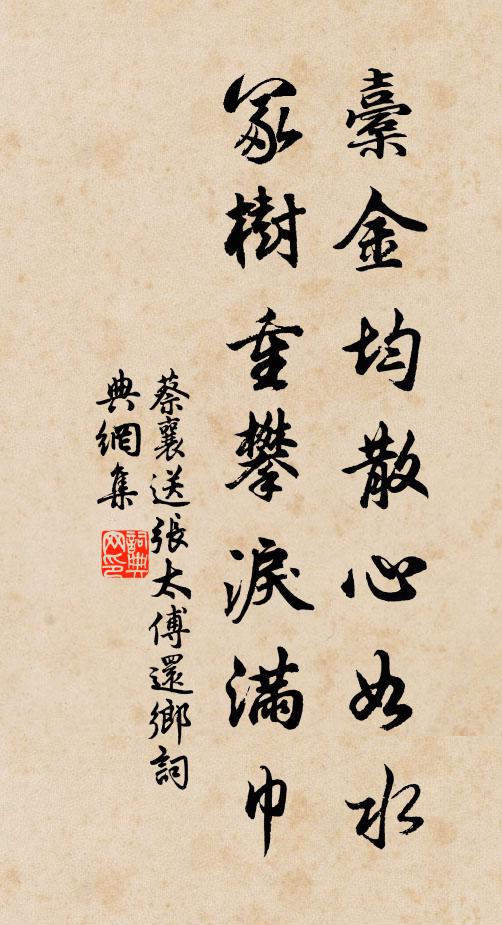 橐金均散心如水
冢樹重攀淚滿巾
蔡襄送張太傅還鄉詞
典網集
詞典網印